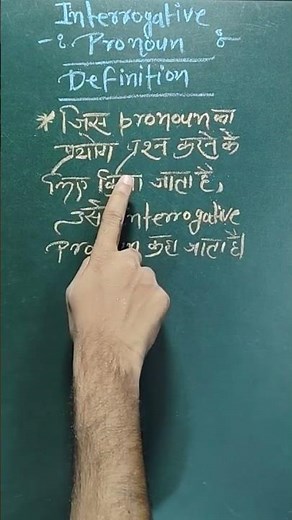 Interrogative
-: Pronoun :-
Definition
* जिस pronoun का
प्रयोग प्रश्न करने के
लिए किया जाता है,
उसे Interrogative
Pronoun कहा जाता है।